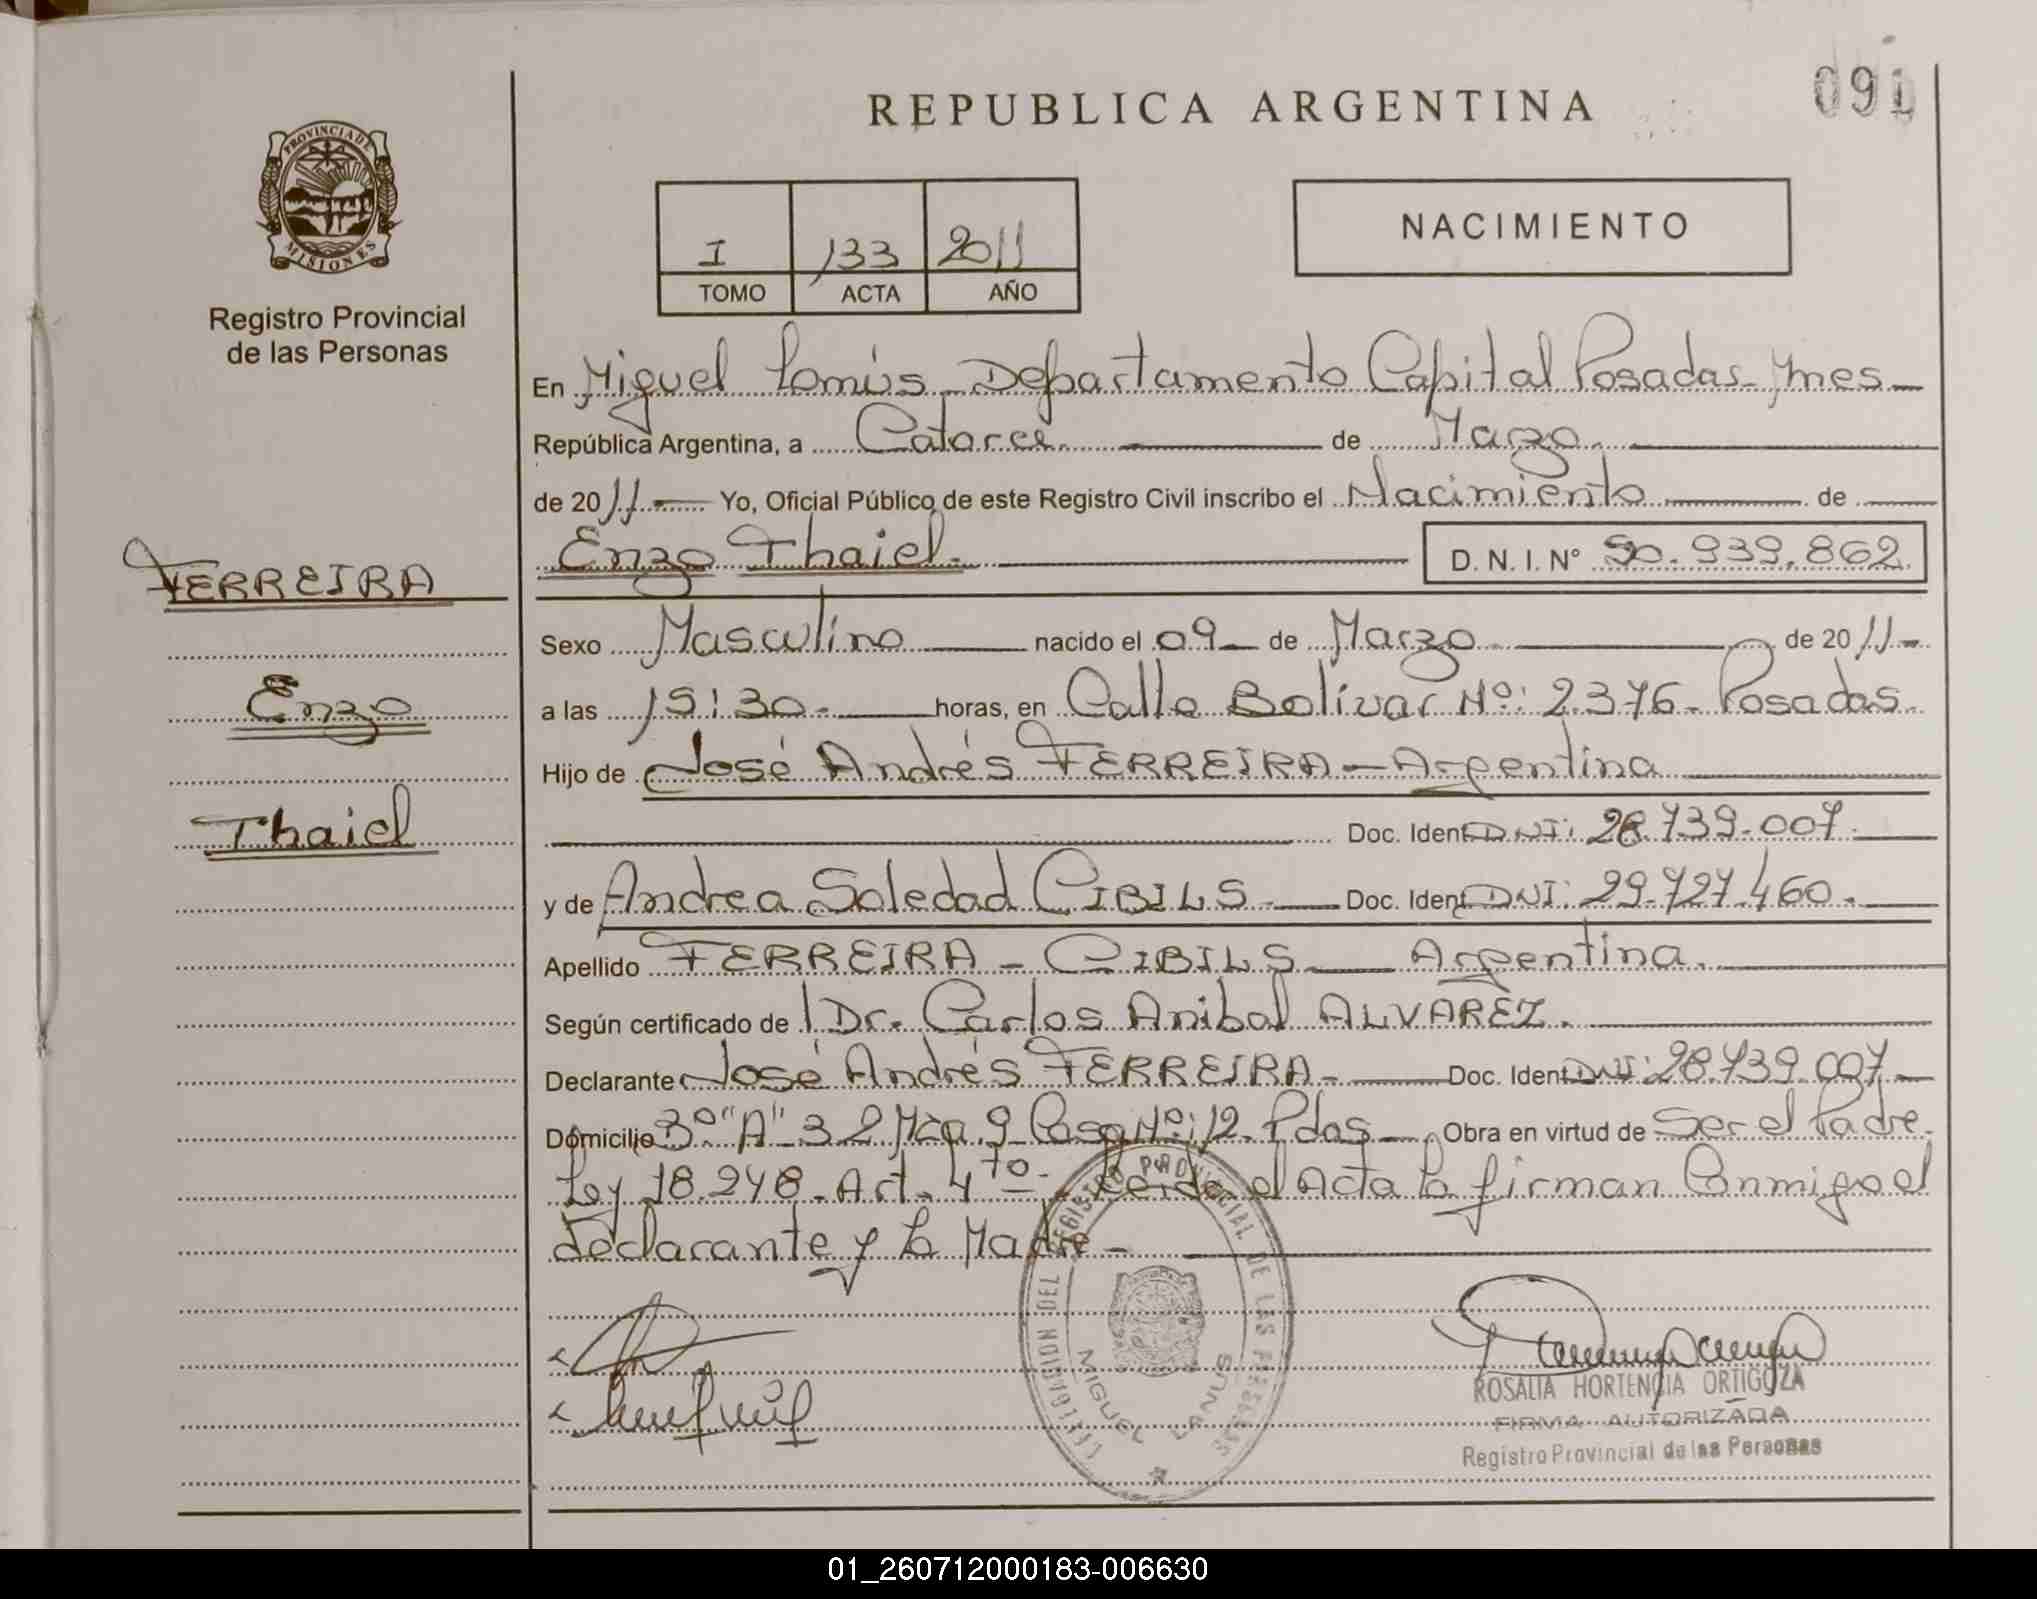 REPUBLICA ARGENTINA
091
PROVINCIA DE
MISIONES
Registro Provincial
de las Personas
I 133 2011
TOMO ACTA AÑO
NACIMIENTO
En Miguel Lanús Departamento Capital Posadas Mnes
República Argentina, a Catorce de Marzo
de 2011 Yo, Oficial Público de este Registro Civil inscribo el Nacimiento de
Enzo Thaiel. D. N. I. N° 50.939.862
FERREIRA
Enzo
Thaiel
Sexo Masculino nacido el 09 de Marzo de 2011
a las 15:30 horas, en Calle Bolívar Nº: 2.376 Posadas
Hijo de José Andrés FERREIRA - Argentina
Doc. Ident DNI: 28.739.007
y de Andrea Soledad CIBILS Doc. Ident DNI: 29.727.460
Apellido FERREIRA - CIBILS Argentina
Según certificado de Dr. Carlos Anibal ALVAREZ
Declarante José Andrés FERREIRA Doc. Ident DNI: 28.739.007
Domicilio 3º "A" 32 Mza 9 Casa Nº: 12 Pdas Obra en virtud de Ser el Padre
Ley 18.248 Art. 4to Leida el Acta la firman Conmigo el
declarante y la Madre
DEL REGISTRO PROVINCIAL DE LAS PERSONAS
MIGUEL LANUS
ROSALIA HORTENCIA ORTIGOZA
FIRMA AUTORIZADA
Registro Provincial de las Personas
01_260712000183-006630